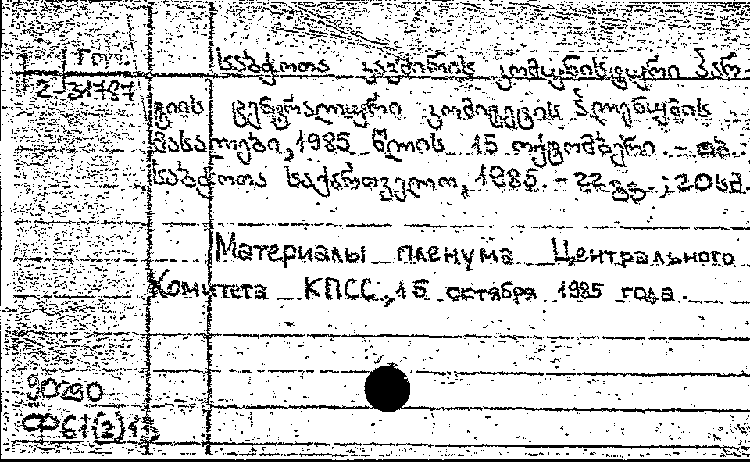 საბჭოთა კავშირის კომუნისტური პარ-
2-31787
ტიის ცენტრალური კომიტეტის პლენუმის
მასალები, 1985 წლის 15 ოქტომბერი. - თბ.:
საბჭოთა საქართველო, 1985. - 22 გვ.; 20 სმ.
Материалы пленума Центрального
Комитета КПСС, 15 октября 1985 года.
90290